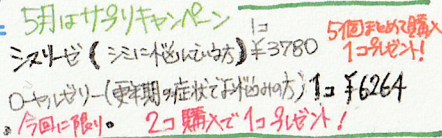 5月はサプリキャンペーン
シミリーゼ(シミに悩んでいる方) 1コ ¥3780 5個まとめて購入 1コプレゼント!
ローヤルゼリー(更年期の症状でお悩みの方) 1コ ¥6264
。今回に限り。 2コ購入で1コプレゼント!